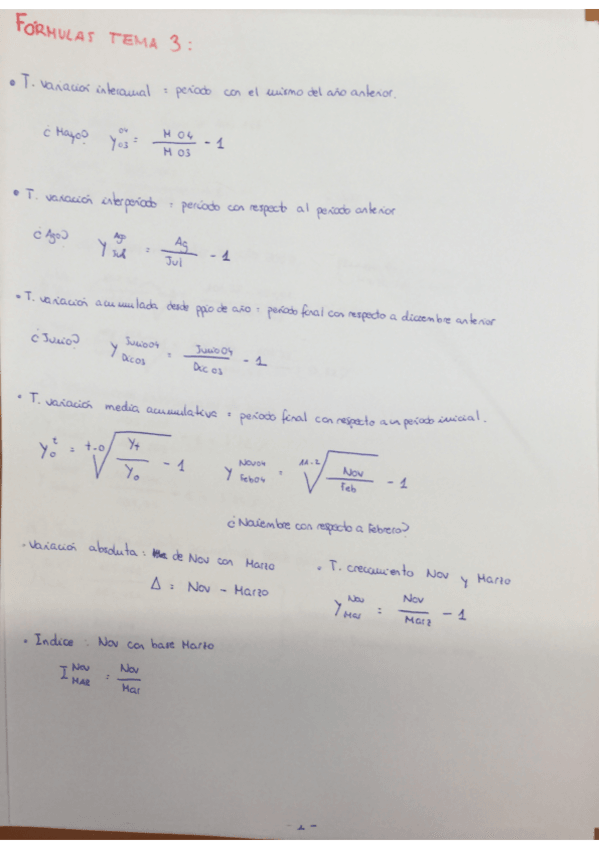 FÓRMULAS TEMA 3:
• T. variación interanual = período con el mismo del año anterior.
¿Mayo? y 04 03 = M 04 / M 03 - 1
• T. variación interperiodo = período con respecto al período anterior
¿Ago? y Ago Jul = Ag / Jul - 1
• T. variación acumulada desde ppio de año = período final con respecto a diciembre anterior
¿Junio? y Junio04 Dic03 = Junio04 / Dic 03 - 1
• T. variación media acumulativa = período final con respecto a un período inicial.
y t o = t-0√ Yt / Yo - 1 y Nov04 Feb04 = 11-2√ Nov / Feb - 1
¿Noviembre con respecto a Febrero?
• Variación absoluta: de Nov con Marzo
Δ = Nov - Marzo
• T. crecimiento Nov y Marzo
y Nov Mar = Nov / Marz - 1
• Indice : Nov con base Marzo
I Nov MAR = Nov / Mar
- 1 -